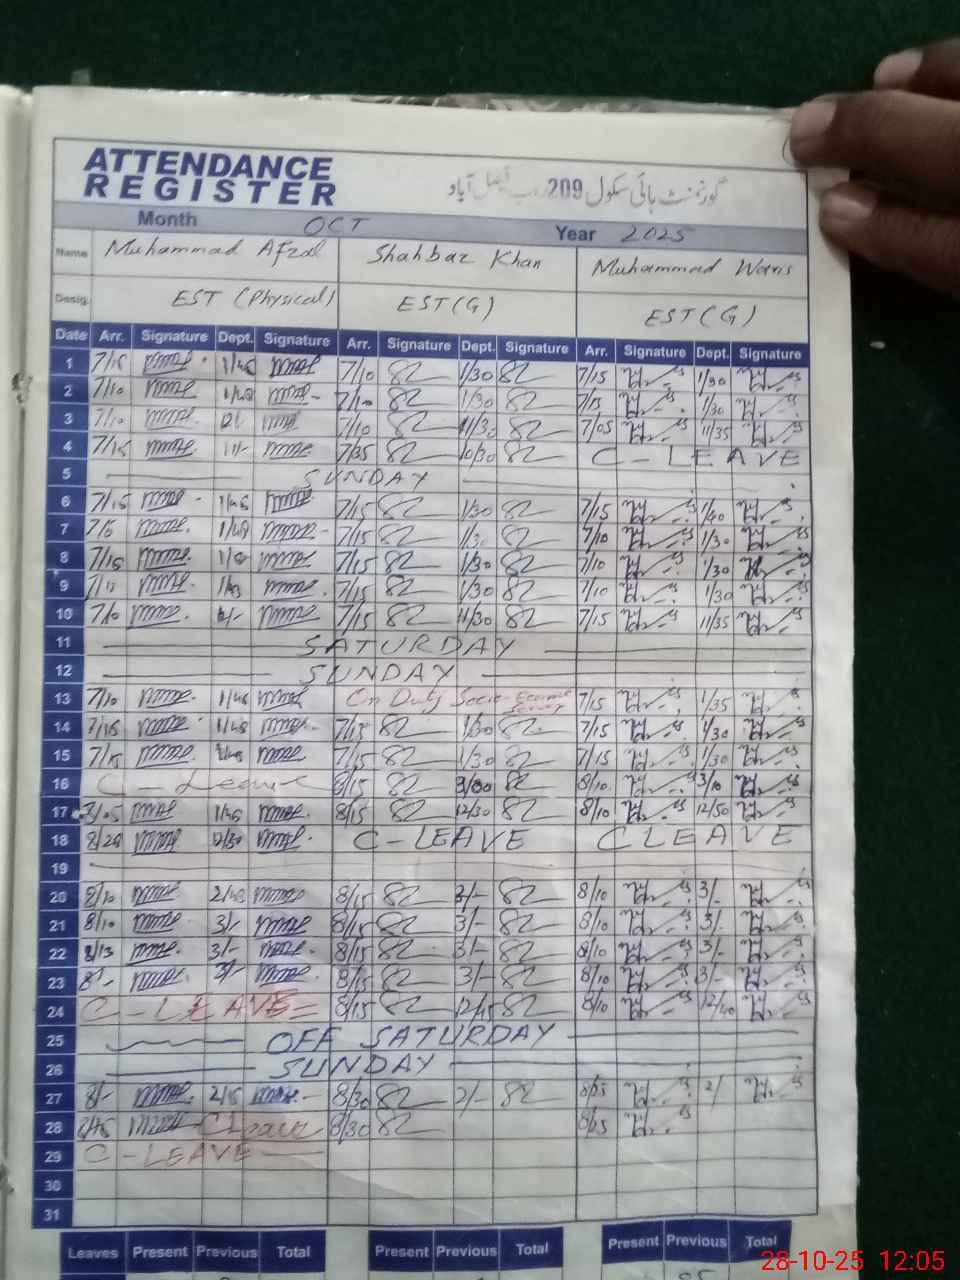 ATTENDANCE
REGISTER
گورنمنٹ ہائی سکول 209 رب فیصل آباد
Month OCT Year 2025
Name Muhammad Afzal Shahbaz Khan Muhammad Waris
Desig. EST (Physical) EST (G) EST (G)
Date Arr. Signature Dept. Signature Arr. Signature Dept. Signature Arr. Signature Dept. Signature
1 7/15 1/45 7/10 1/30 7/15 1/30
2 7/10 7/10 1/30 7/15 1/30
3 7/10 7/10 11/30 7/05 11/35
4 7/15 7/35 10/30 C-LEAVE
5 SUNDAY
6 7/15 1/45 7/15 1/30 7/15 1/40
7 7/15 1/30 7/10 1/30
8 7/15 7/15 1/30 7/10 1/30
9 7/15 1/30 7/10 1/30
10 7/10 7/15 11/30 7/15 11/35
11 SATURDAY
12 SUNDAY
13 7/10 1/45 On Duty Socio-Economic Survey 7/15 1/35
14 7/15 1/45 7/15 1/30 7/15 1/30
15 7/15 7/15 1/30 7/15 1/30
16 C-Leave 8/15 3/00 8/10 3/10
17 8/15 12/30 8/10 12/50
18 8/20 12/30 C-LEAVE C LEAVE
19
20 8/10 8/15 3/- 8/10 3/-
21 8/10 3/- 8/15 3/- 8/10 3/-
22 8/13 3/- 8/15 3/- 8/10 3/-
23 8/- 3/- 8/15 3/- 8/10 3/-
24 C-LEAVE 8/15 12/45 8/10 12/40
25 OFF SATURDAY
26 SUNDAY
27 8/- 2/15 8/30 2/- 8/25 2/
28 C Leave 8/30 8/25
29 C-LEAVE
30
31
Leaves Present Previous Total Present Previous Total Present Previous Total
28-10-25 12:05